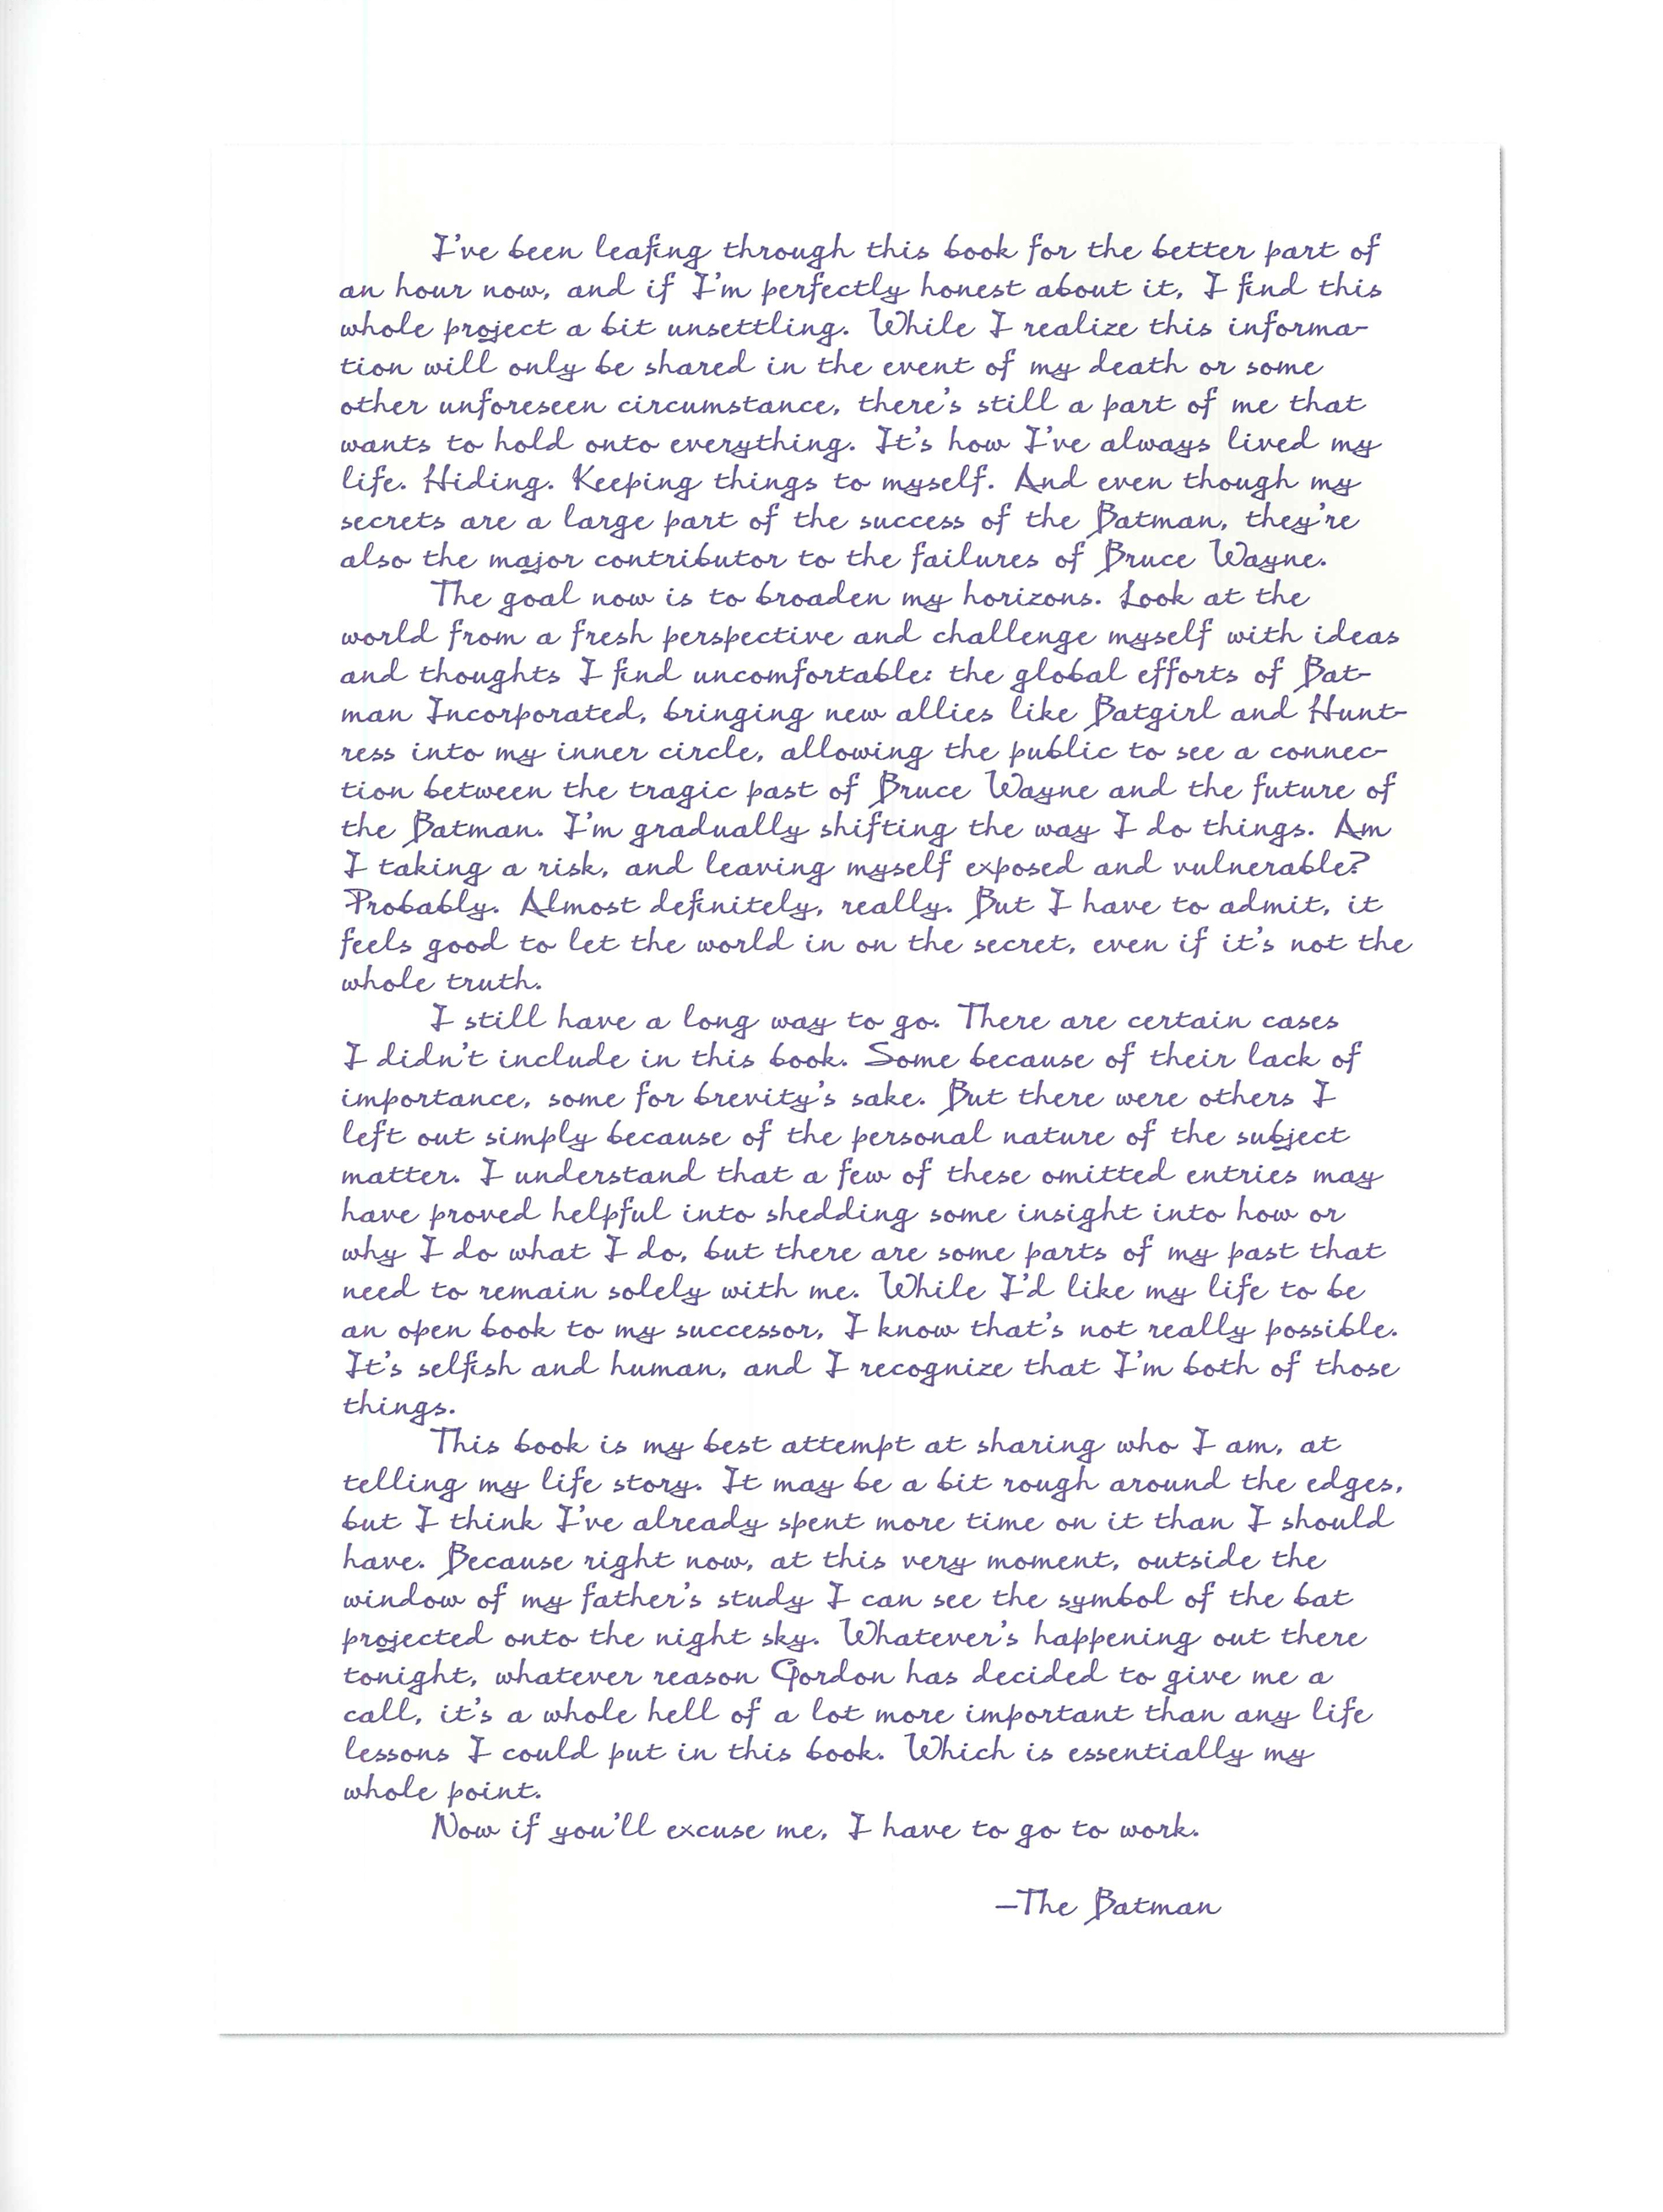 I've been leafing through this book for the better part of
an hour now, and if I'm perfectly honest about it, I find this
whole project a bit unsettling. While I realize this informa-
tion will only be shared in the event of my death or some
other unforeseen circumstance, there's still a part of me that
wants to hold onto everything. It's how I've always lived my
life. Hiding. Keeping things to myself. And even though my
secrets are a large part of the success of the Batman, they're
also the major contributor to the failures of Bruce Wayne.
The goal now is to broaden my horizons. Look at the
world from a fresh perspective and challenge myself with ideas
and thoughts I find uncomfortable: the global efforts of Bat-
man Incorporated, bringing new allies like Batgirl and Hunt-
ress into my inner circle, allowing the public to see a connec-
tion between the tragic past of Bruce Wayne and the future of
the Batman. I'm gradually shifting the way I do things. Am
I taking a risk, and leaving myself exposed and vulnerable?
Probably. Almost definitely, really. But I have to admit, it
feels good to let the world in on the secret, even if it's not the
whole truth.
I still have a long way to go. There are certain cases
I didn't include in this book. Some because of their lack of
importance, some for brevity's sake. But there were others I
left out simply because of the personal nature of the subject
matter. I understand that a few of these omitted entries may
have proved helpful into shedding some insight into how or
why I do what I do, but there are some parts of my past that
need to remain solely with me. While I'd like my life to be
an open book to my successor, I know that's not really possible.
It's selfish and human, and I recognize that I'm both of those
things.
This book is my best attempt at sharing who I am, at
telling my life story. It may be a bit rough around the edges,
but I think I've already spent more time on it than I should
have. Because right now, at this very moment, outside the
window of my father's study I can see the symbol of the bat
projected onto the night sky. Whatever's happening out there
tonight, whatever reason Gordon has decided to give me a
call, it's a whole hell of a lot more important than any life
lessons I could put in this book. Which is essentially my
whole point.
Now if you'll excuse me, I have to go to work.
—The Batman